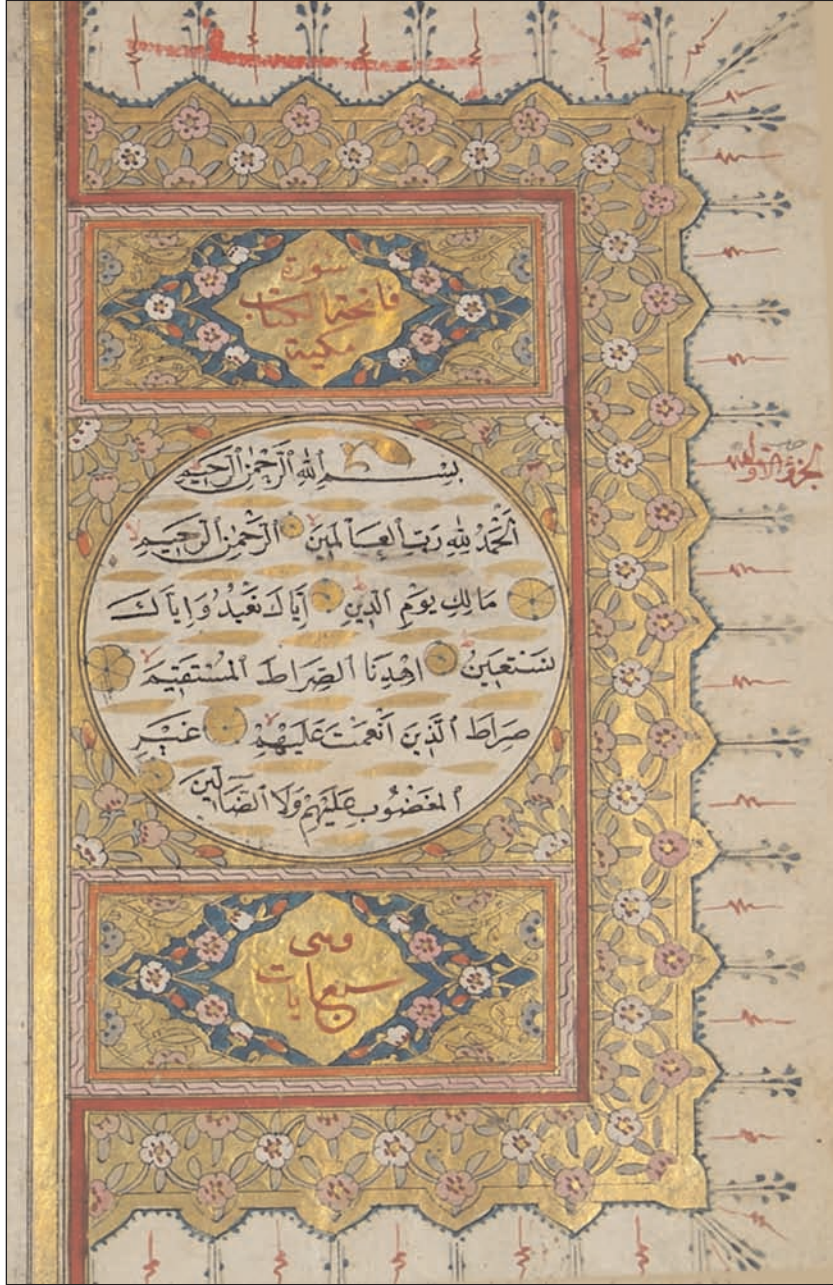 سورة
فاتحة الكتاب
مكية
بِسْمِ ٱللهِ ٱلرَّحْمٰنِ ٱلرَّحِيمِ
اَلْحَمْدُ لِلّٰهِ رَبِّ ٱلْعَالَمِينَ ٱلرَّحْمٰنِ ٱلرَّحِيمِ
مَالِكِ يَوْمِ ٱلدِّينِ اِيَّاكَ نَعْبُدُ وَاِيَّاكَ
نَسْتَعِينُ اِهْدِنَا ٱلصِّرَاطَ ٱلْمُسْتَقِيمَ
صِرَاطَ ٱلَّذِينَ اَنْعَمْتَ عَلَيْهِمْ غَيْرِ
ٱلْمَغْضُوبِ عَلَيْهِمْ وَلَا ٱلضَّالِّينَ
وهى
سبع ايات
الجزؤ الاول